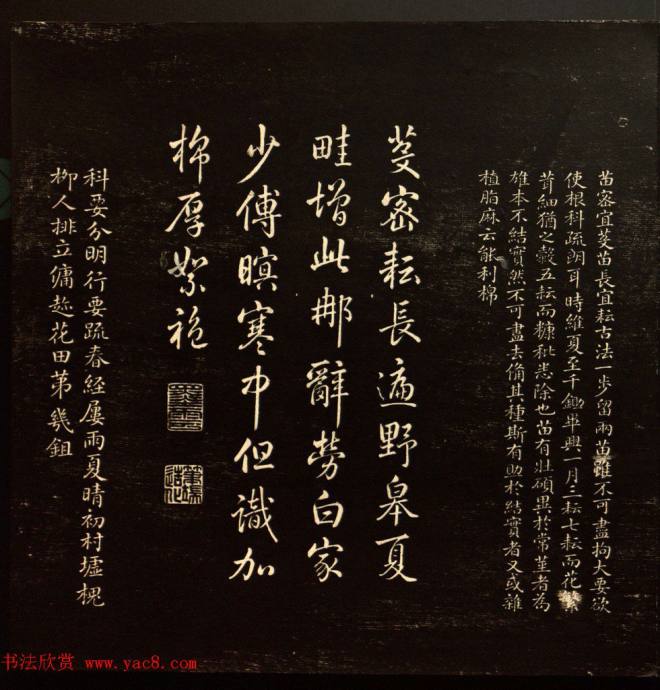 苗密宜芟苗長宜耘古法一步留兩苗雖不可盡拘大要欲
使根科疏朗耳時維夏至千鋤畢興一月三耘七耘而花繁
茸細猶之穀五耘而糠秕悉除也苗有壯碩異於常莖者為
雄本不結實然不可盡去備其種斯有助於結實者又或雜
植脂麻云能利棉
芟密耘長遍野皋夏
畦增此那辭勞白家
少傅暝寒中但識加
棉厚絮袍
科要分明行要疏春經屢雨夏晴初村墟槐
柳人排立傭趁花田第幾鉏
书法欣赏 www.yac8.com